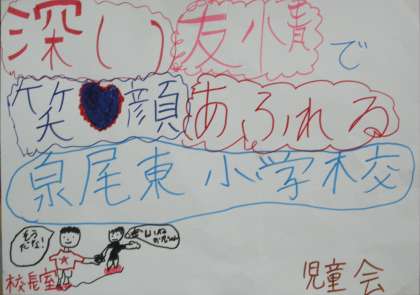 深い友情で
笑顔あふれる
泉尾東小学校
そう
だな!
校長室
児童会